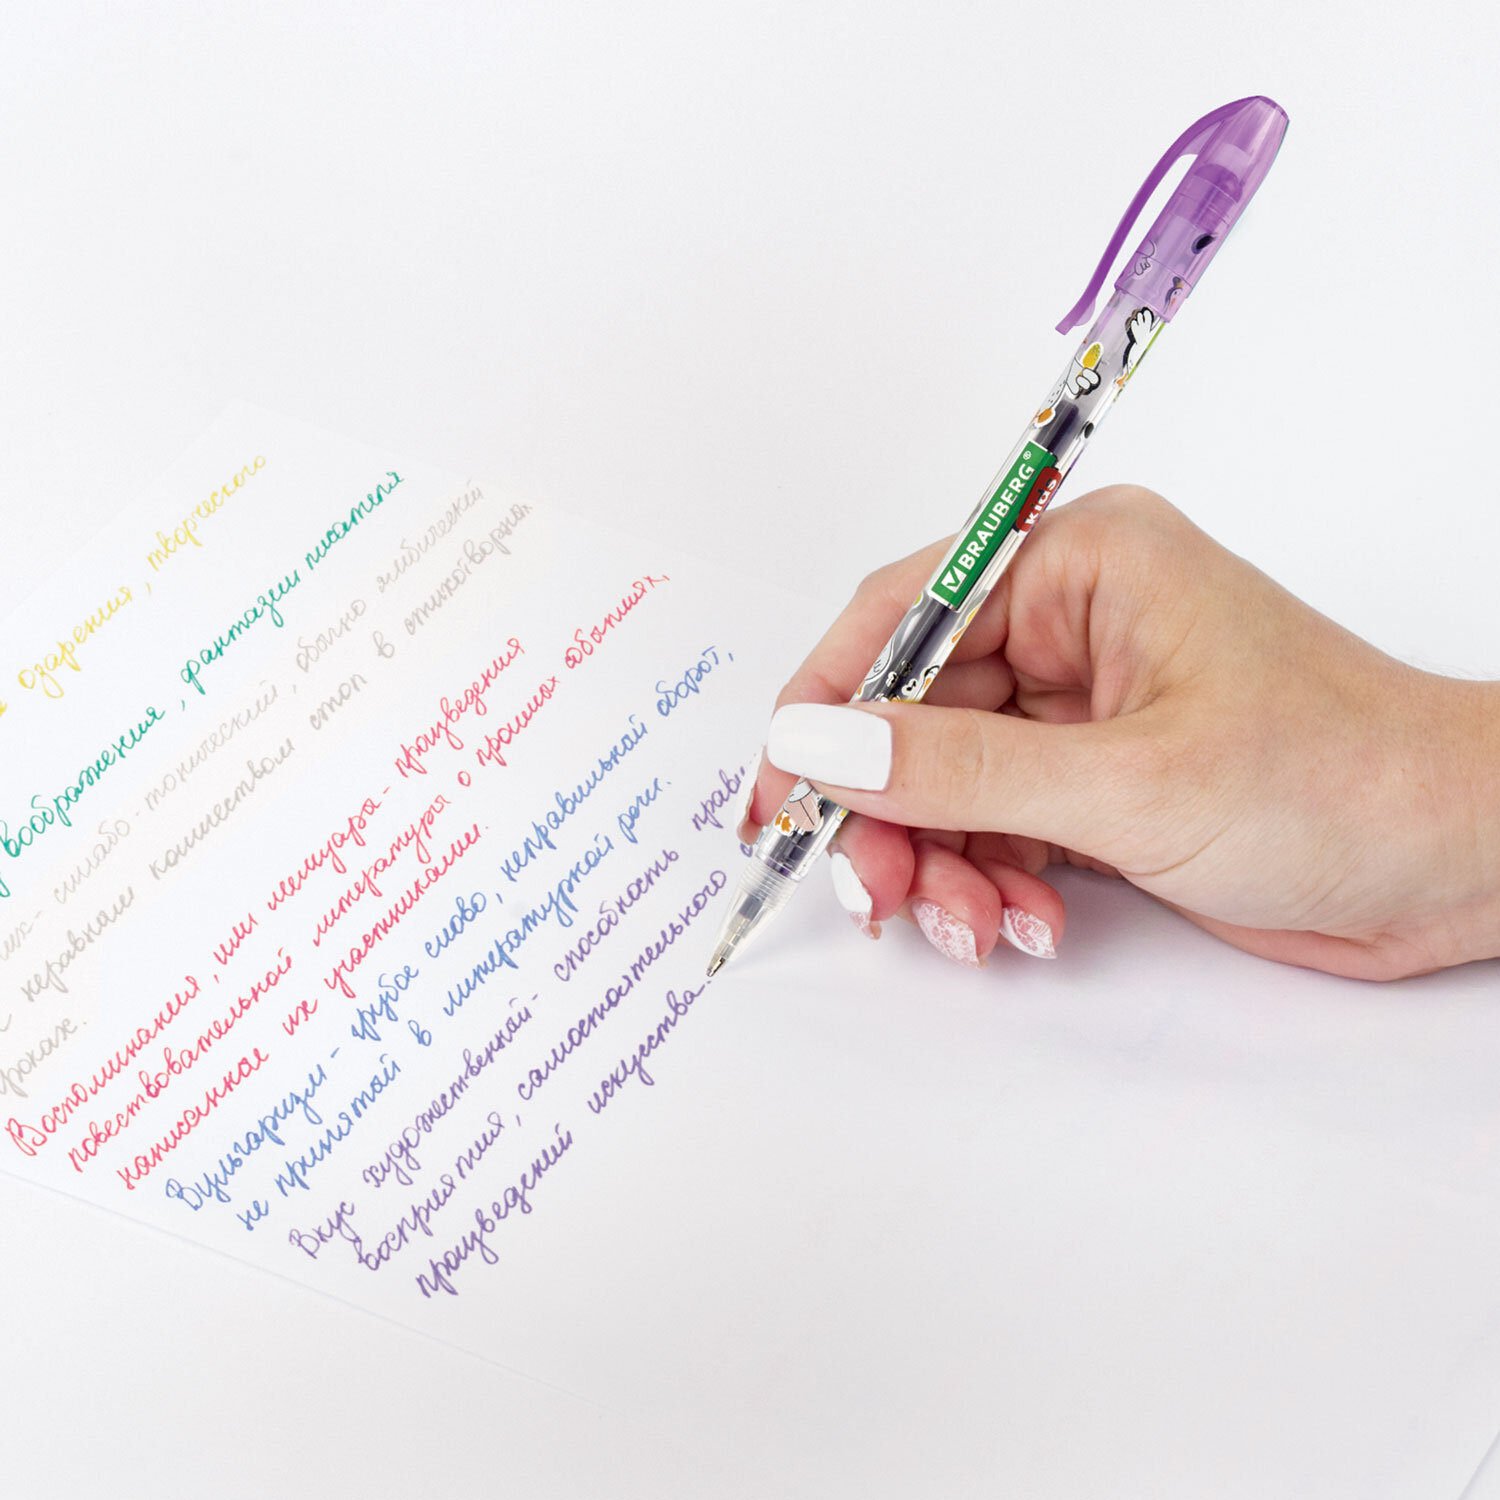 озарения, творческого
воображения, фантазии писателя
слабо-тонический, обычно мибический
неравным количеством стоп в стихотворных
строках.
Воспоминания, или мемуары - произведения
повествовательной литературы о прошлых событиях,
написанное их участниками.
Вульгаризм - грубое слово, неправильный оборот,
не принятой в литературной речи.
Вкус художественный - способность прави
восприятия, самостоятельного
произведений искусства.
BRAUBERG®
kids